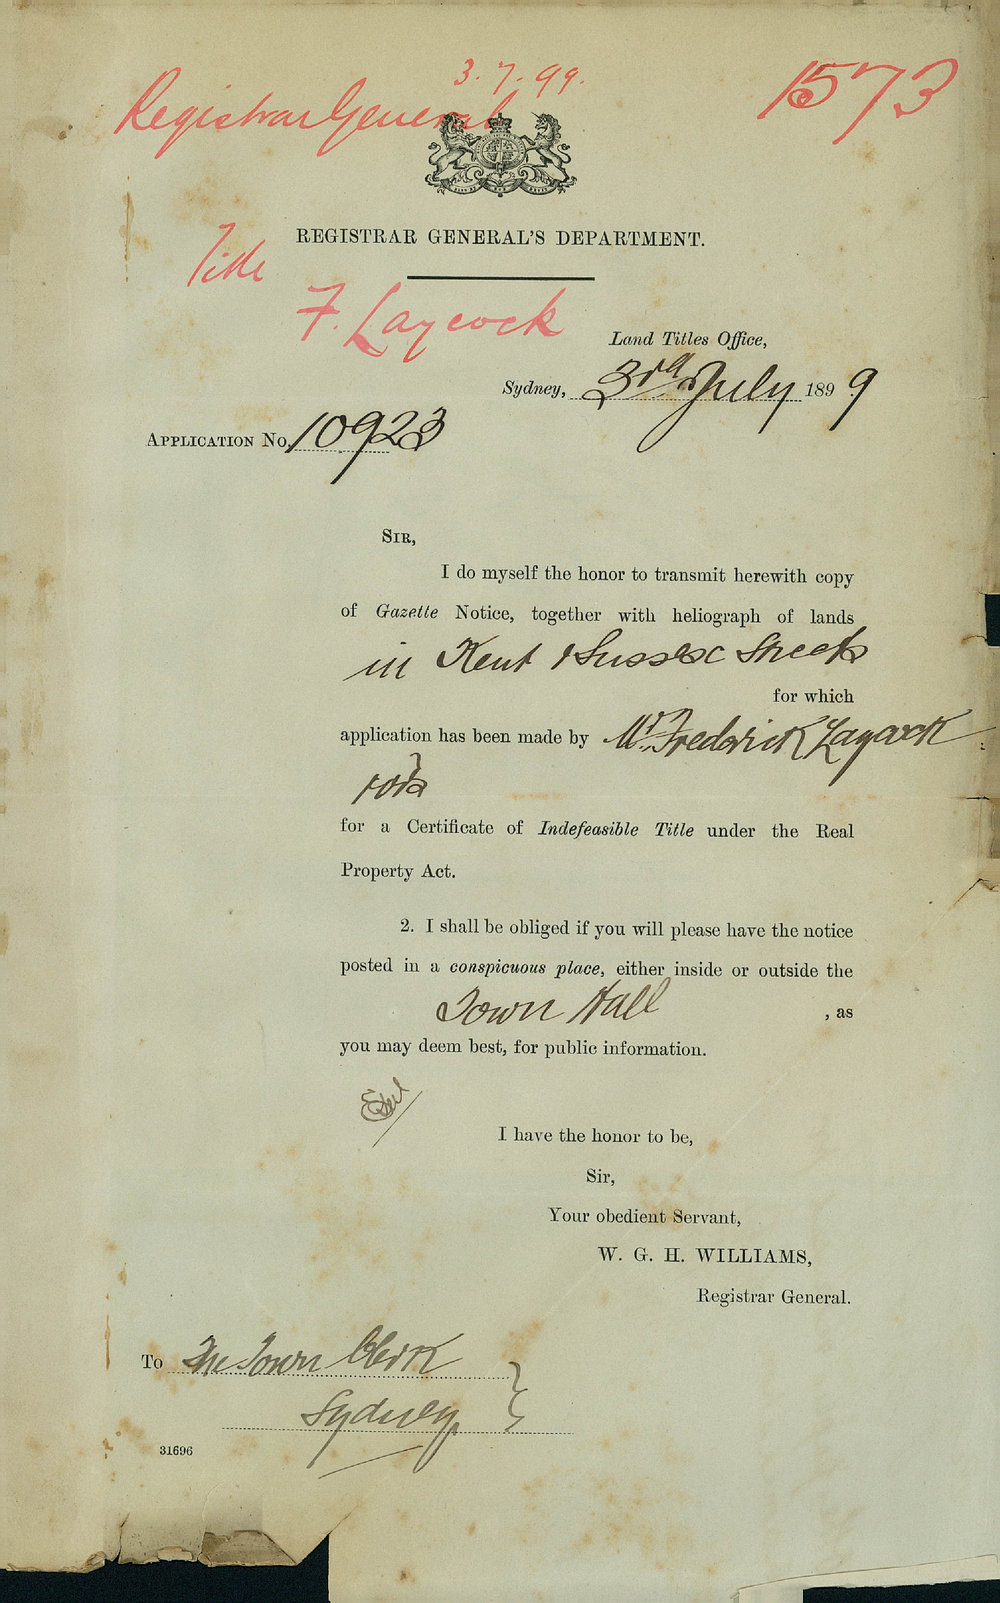 3.7.99.
Registrar General
1573
REGISTRAR GENERAL'S DEPARTMENT.
Title
F. Laycock
Land Titles Office,
Sydney, 3rd July 1899
APPLICATION No. 10923
SIR,
I do myself the honor to transmit herewith copy
of Gazette Notice, together with heliograph of lands
in Kent & Sussex Streets
for which
application has been made by Mr. Frederick Laycock
& ors
for a Certificate of Indefeasible Title under the Real
Property Act.
2. I shall be obliged if you will please have the notice
posted in a conspicuous place, either inside or outside the
Town Hall , as
you may deem best, for public information.
I have the honor to be,
Sir,
Your obedient Servant,
W. G. H. WILLIAMS,
Registrar General.
To The Town Clerk
Sydney
31696